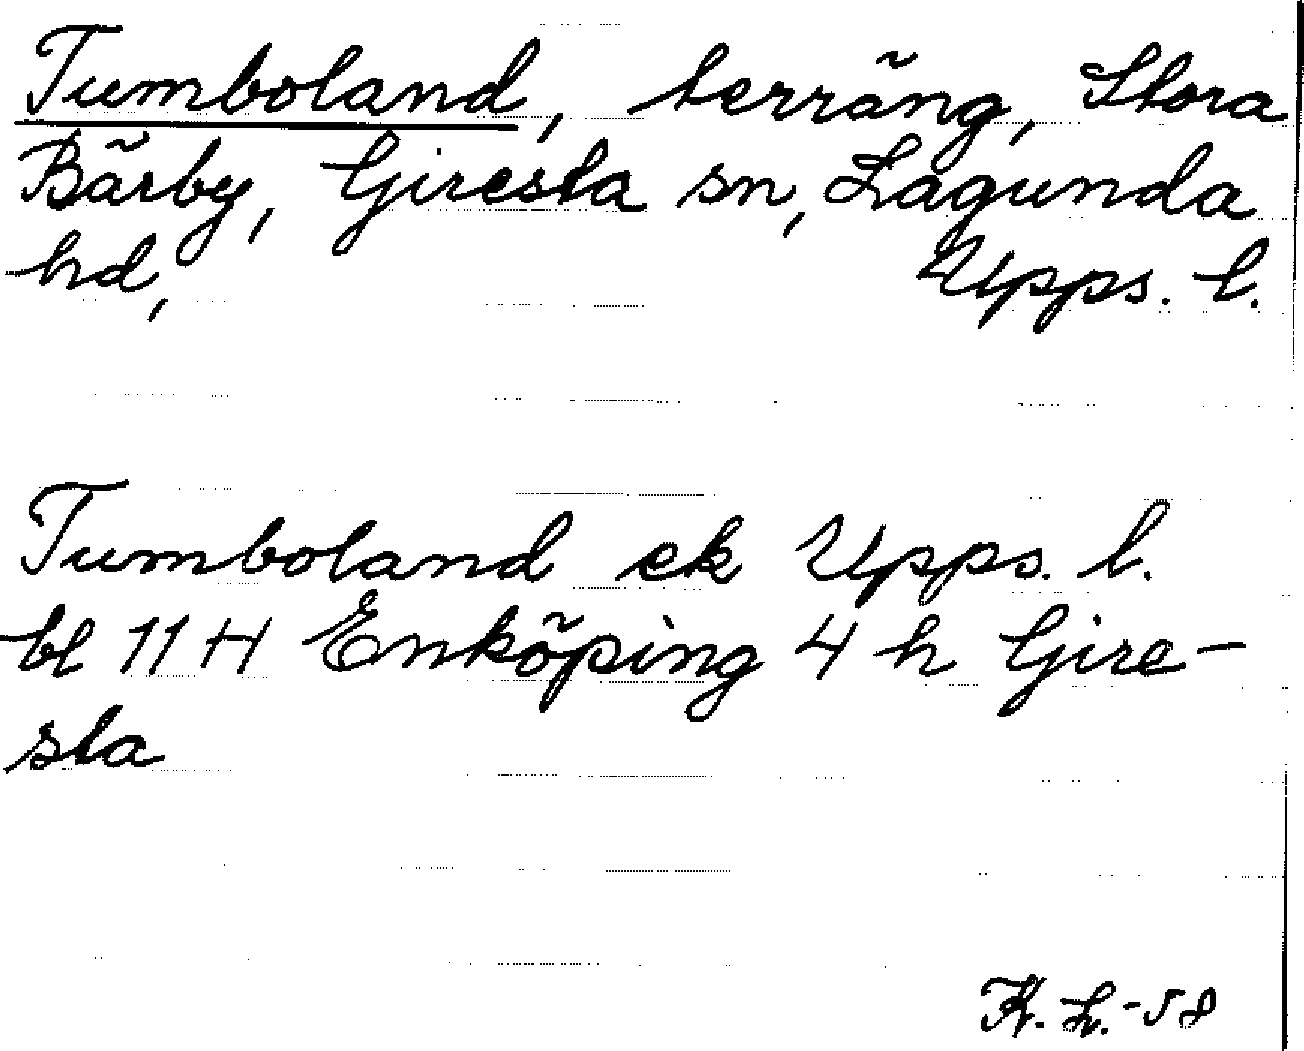 Tumboland, terräng, Stora
Bärby, Giresta sn, Lagunda
hd, Upps. l.
Tumboland ek Upps. l.
bl 11 H Enköping 4 h Gire-
sta
K. L. -58